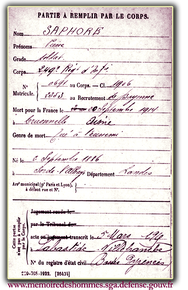 PARTIE À REMPLIR PAR LE CORPS.
Nom SAPHORE
Prénoms Pierre
Grade soldat
Corps 249e Rég. d'Inf.
N° au Corps. — Cl. 1906
Matricule. 1253 au Recrutement de Bayonne
Mort pour la France le septembre 1914
à Aisne
Genre de mort à l'ennemi
Né le 2 Septembre 1886
à Département Landes
Arr. municipal (p. Paris et Lyon),
à défaut rue et N°.
Jugement rendu le
par le Tribunal de
acte ou jugement transcrit le 5 Mars
à Labastide Villefranche
N° du registre d'état civil Basses Pyrénées
www.memoiredeshommes.sga.defense.gouv.fr